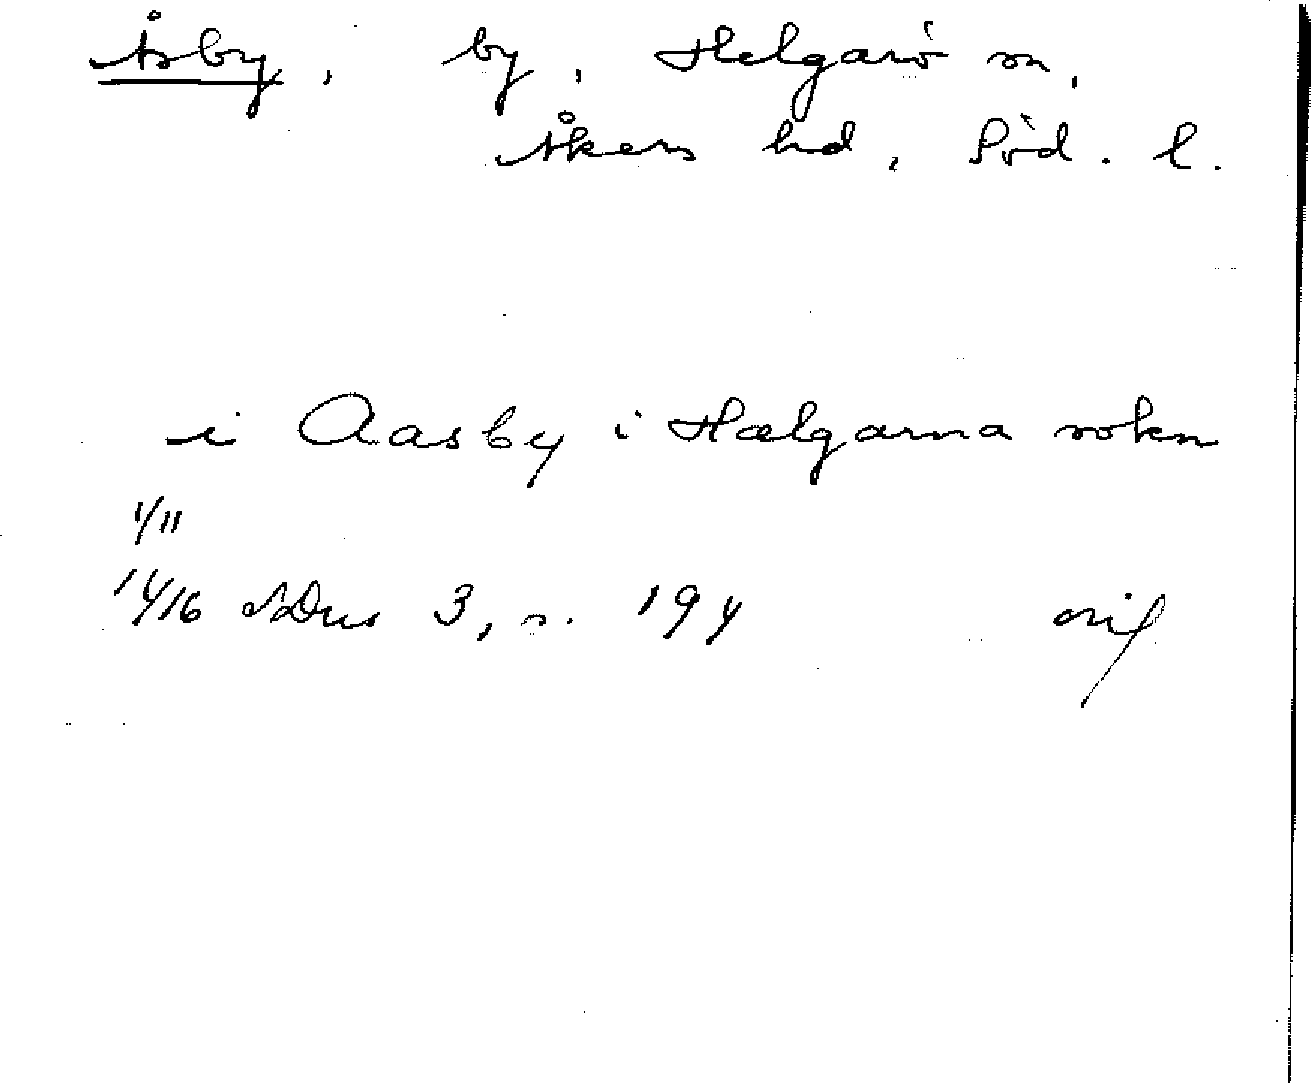 Åsby, by, Helgarö sn,
Åkers hd, Söd. l.
i Aasby i Hælgarna sokn
1/11
1416 SDns 3, s. 194 orig